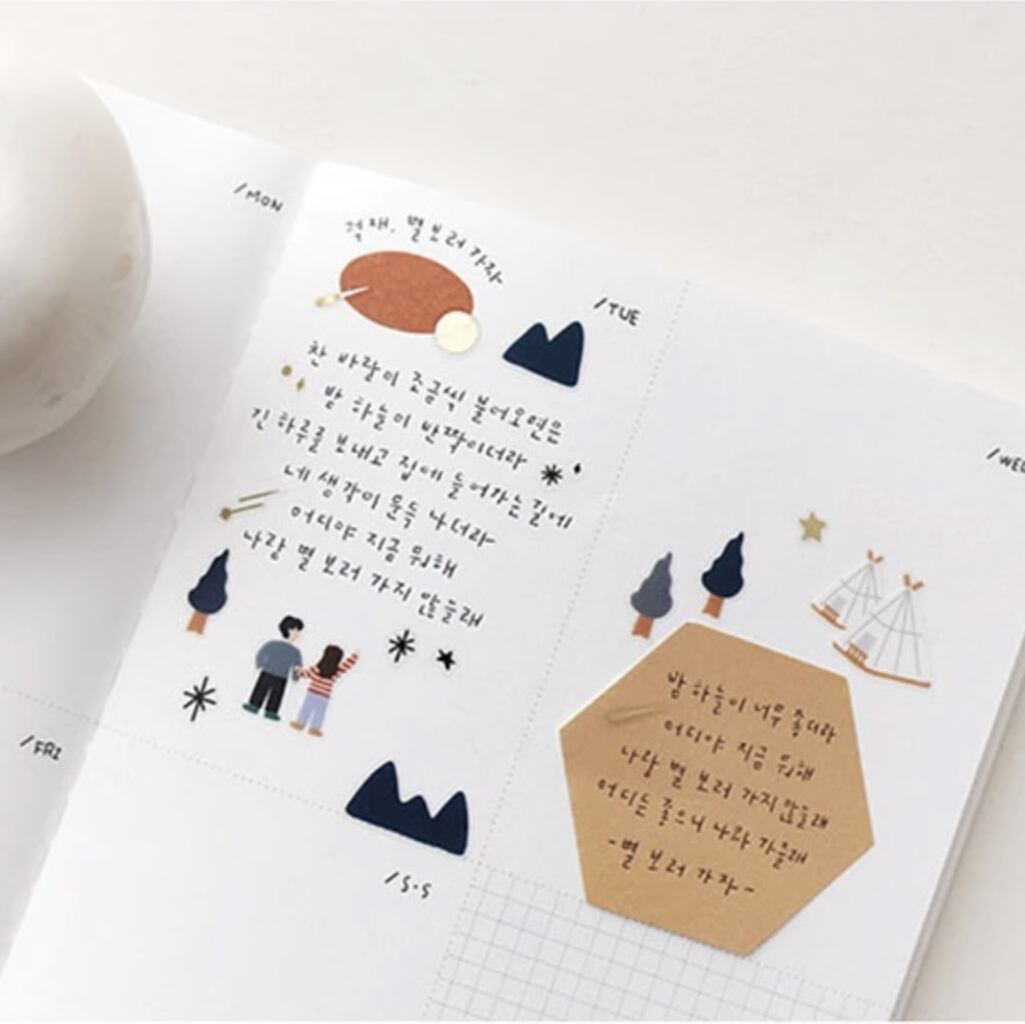 /MON
적재, 별 보러 가자
/TUE
찬 바람이 조금씩 불어오면은
밤 하늘이 반짝이더라
긴 하루를 보내고 집에 들어가는 길에
네 생각이 문득 나더라
어디야 지금 뭐해
나랑 별 보러 가지 않을래
/WED
밤 하늘이 너무 좋더라
어디야 지금 뭐해
나랑 별 보러 가지 않을래
어디든 좋으니 나와 가줄래
-별 보러 가자-
/FRI
/S.S